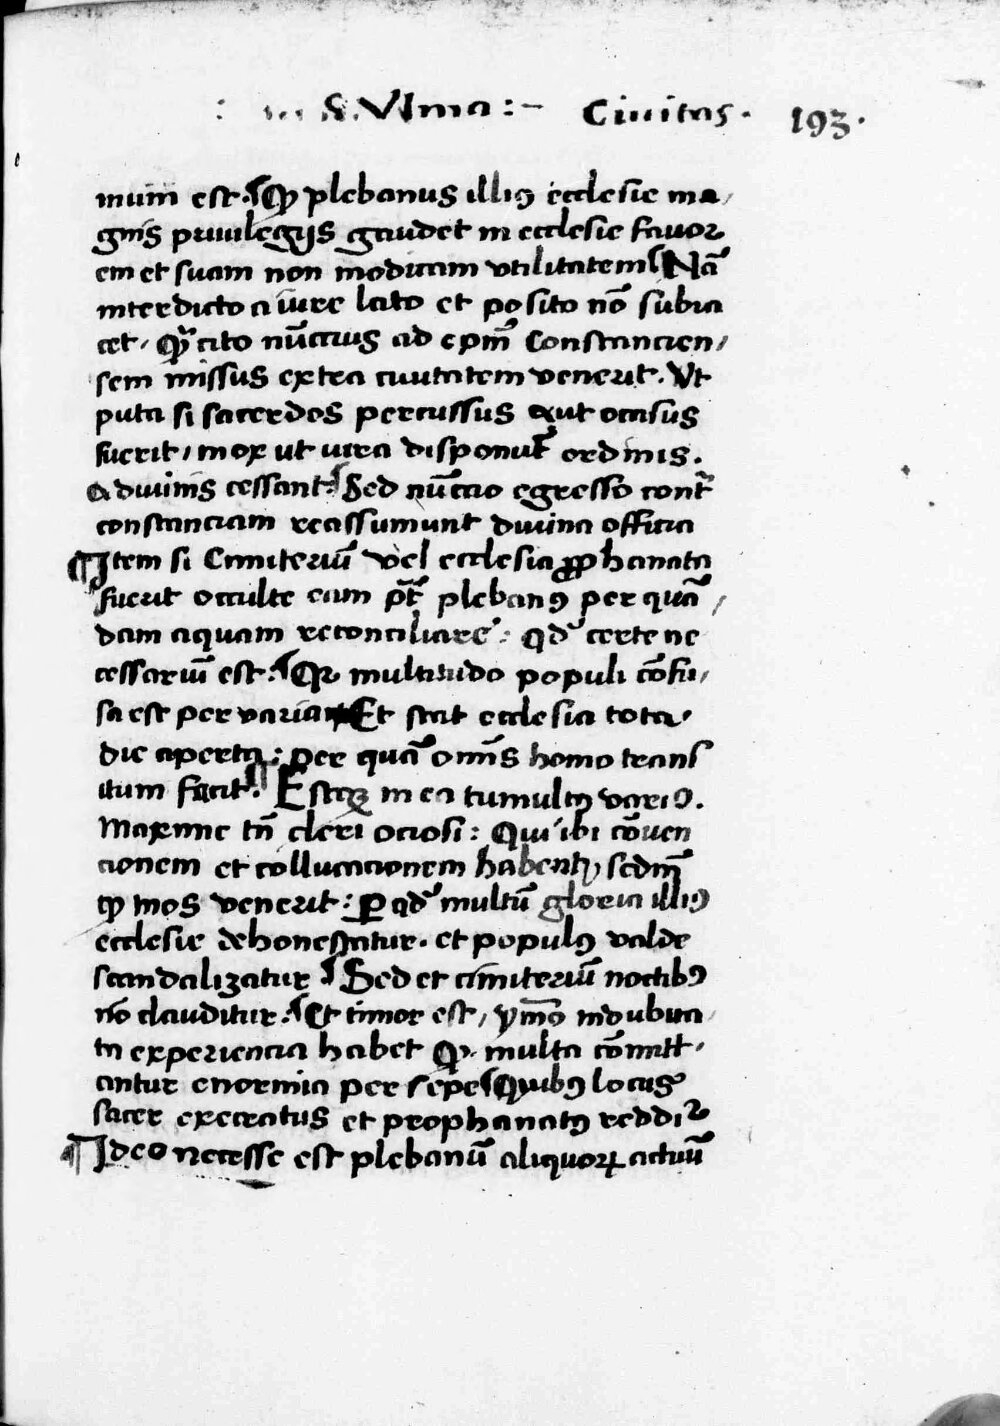 Vlma :- Ciuitas · 193 ·
mum est · ¶ Qꝙ plebanus illiꝯ ecclesie ma,
gnis priuilegijs gaudet in ecclesie fauor
em et suam non modicam vtilitatem ¶ Nā
interdicto a iure lato et posito nō subia
cet · Qꝛ cito nūccius ad epm̄ Constancien,
sem missus extra ciuitatem venerit . Vt
puta si sacerdos percussus aut occisus
fuerit, mox ut vica disponūt ordinis .
a diuinis cessant : ¶ Sed nūccio egresso contr̄
constanciam reassumunt diuina officia
¶ Item si Cimiteriū vel ecclesia ꝓphanata
fuerit occulte eam pōt plebanꝯ per quā,
dam aquam reconciliare : qd' certe ne
cessariū est : ¶ Qꝛ multitudo populi cōfu,
sa est per variam Et stat ecclesia tota
die aperta : per quā om̄s homo trans
itum facit : ¶ Estqꝫ in ea tumultꝯ variꝯ .
Maxime tn̄ cleri ociosi : Qui ibi cōuen
cionem et collucacionem habentꝭ sedm̄
qꝙ mos venerit : Per qd' multū gloria illiꝯ
ecclesie dehonestatur · et populꝯ valde
scandalizatur ¶ Sed et cimiteriū noctibꝯ
nō clauditur : ¶ Et timor est, ymō indubita
ta experiencia habet Qꝙ multa cōmitt ·
antur enormia per sepe ¶ Quibꝯ locus
sacer execratus et prophanatꝯ redditꝛ
¶ Ideo necesse est plebanū aliquoꝝ actuū